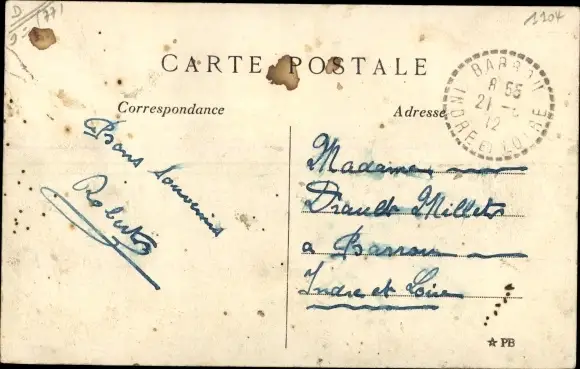 D (77)
1104
CARTE POSTALE
Correspondance
Adresse
BARROU
8 55
21 -
12
INDRE ET LOIRE
Bons Souvenirs
Madame
Millet
a Barrou
Indre et Loire
☆ PB